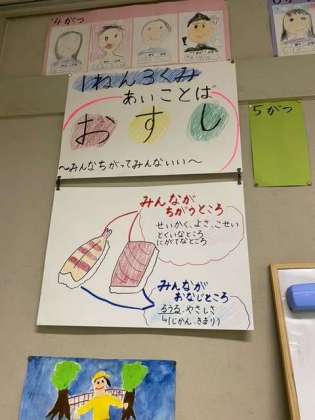 4がつ
1ねん3くみ
あいことば
おすし
～みんなちがってみんないい～
5がつ
みんなが
ちがうところ
せいかく、よさ、こせい
とくいなところ
にがてなところ
みんなが
おなじところ
るうる、やさしさ
↳(じかん、きまり)